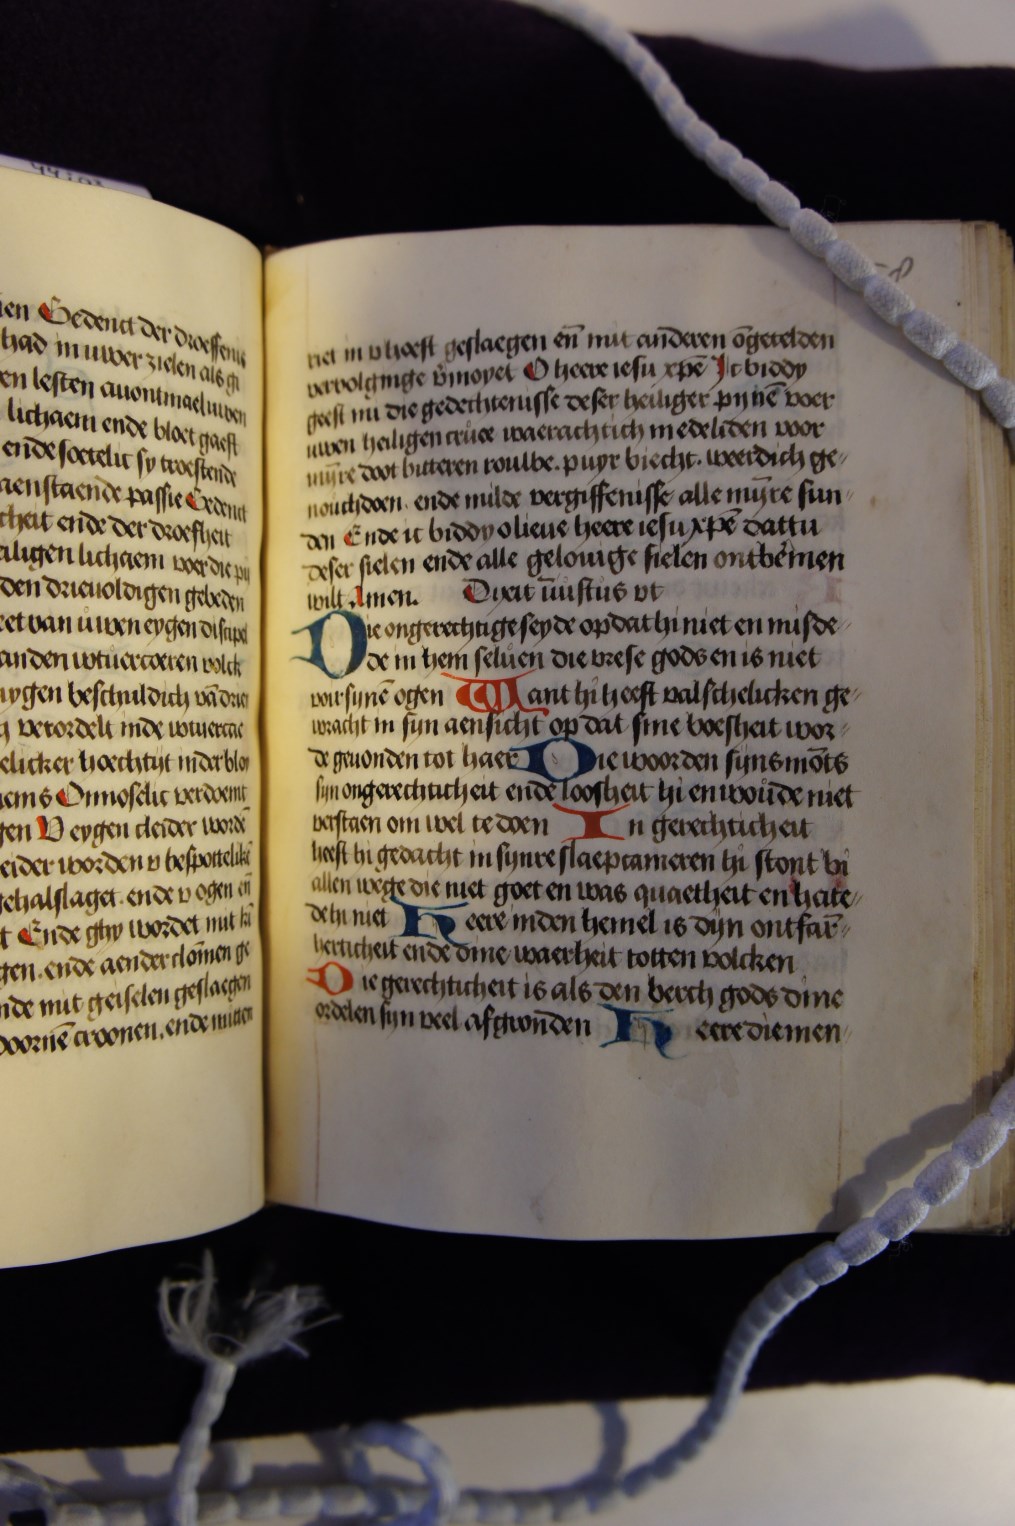 ien Gedenct der droeffenis
had in uwer zielen als gi
en lesten auontmael uwen
lichaem ende bloet gaeft
ende soetelic sy troestende
aenstaende passie Gedenct
cheit ende der droefheit
eiligen lichaem voer die pij
den drieuoldigen gebeden
eet van uwen eygen discipel
anden wtuercoren volck
uygen beschuldich van drien
verordelt inde
elicker hoechtijt
Onnoselic verdoemt
gen V eygen cleider worde
eider worden v bespottelike
gehalslaget. ende v ogen en
t Ende ghy wordet mit
gen. ende aender clomen ge
nde mit geiselen geslaegen
doorne croonen. ende mitten
riet in v hoeft geslaegen en mit anderen ongetelden
veruolginge vmoyet O heere iesu xpe Ic biddy
geeft mi die gedechtenisse deser heiliger pynen voer
uwen heiligen cruce waerachtich medeliden voor
mijre doot biechte. weerdich ge-
nouchdoen. ende milde vergiffenisse alle mijre sun-
den Ende ic biddy o lieue heere iesu xpe dattu
deser sielen ende alle gelouige sielen ontbermen
wilt Amen. Dixit iustus vt
Die ongerechtige seyde op dat hi niet en misde-
de in hem seluen die vrese gods en is niet
voir synen ogen Want hi heeft valschelicken ge-
wracht in sijn aensicht op dat sine boesheit wor-
de geuonden tot haet Die woorden sijns monts
sijn ongerechticheit ende loosheit hi en woude niet
verstaen om wel te doen In gerechticheit
heeft hi gedacht in synre slaepcameren hi stont bi
allen wege die niet goet en was quaetheit en hate-
de hi niet Heere inden hemel is dijn ontfar-
herticheit ende dine waerheit totten volcken
Die gerechticheit is als den berch gods dine
ordelen sijn veel afgronden Heere die men-